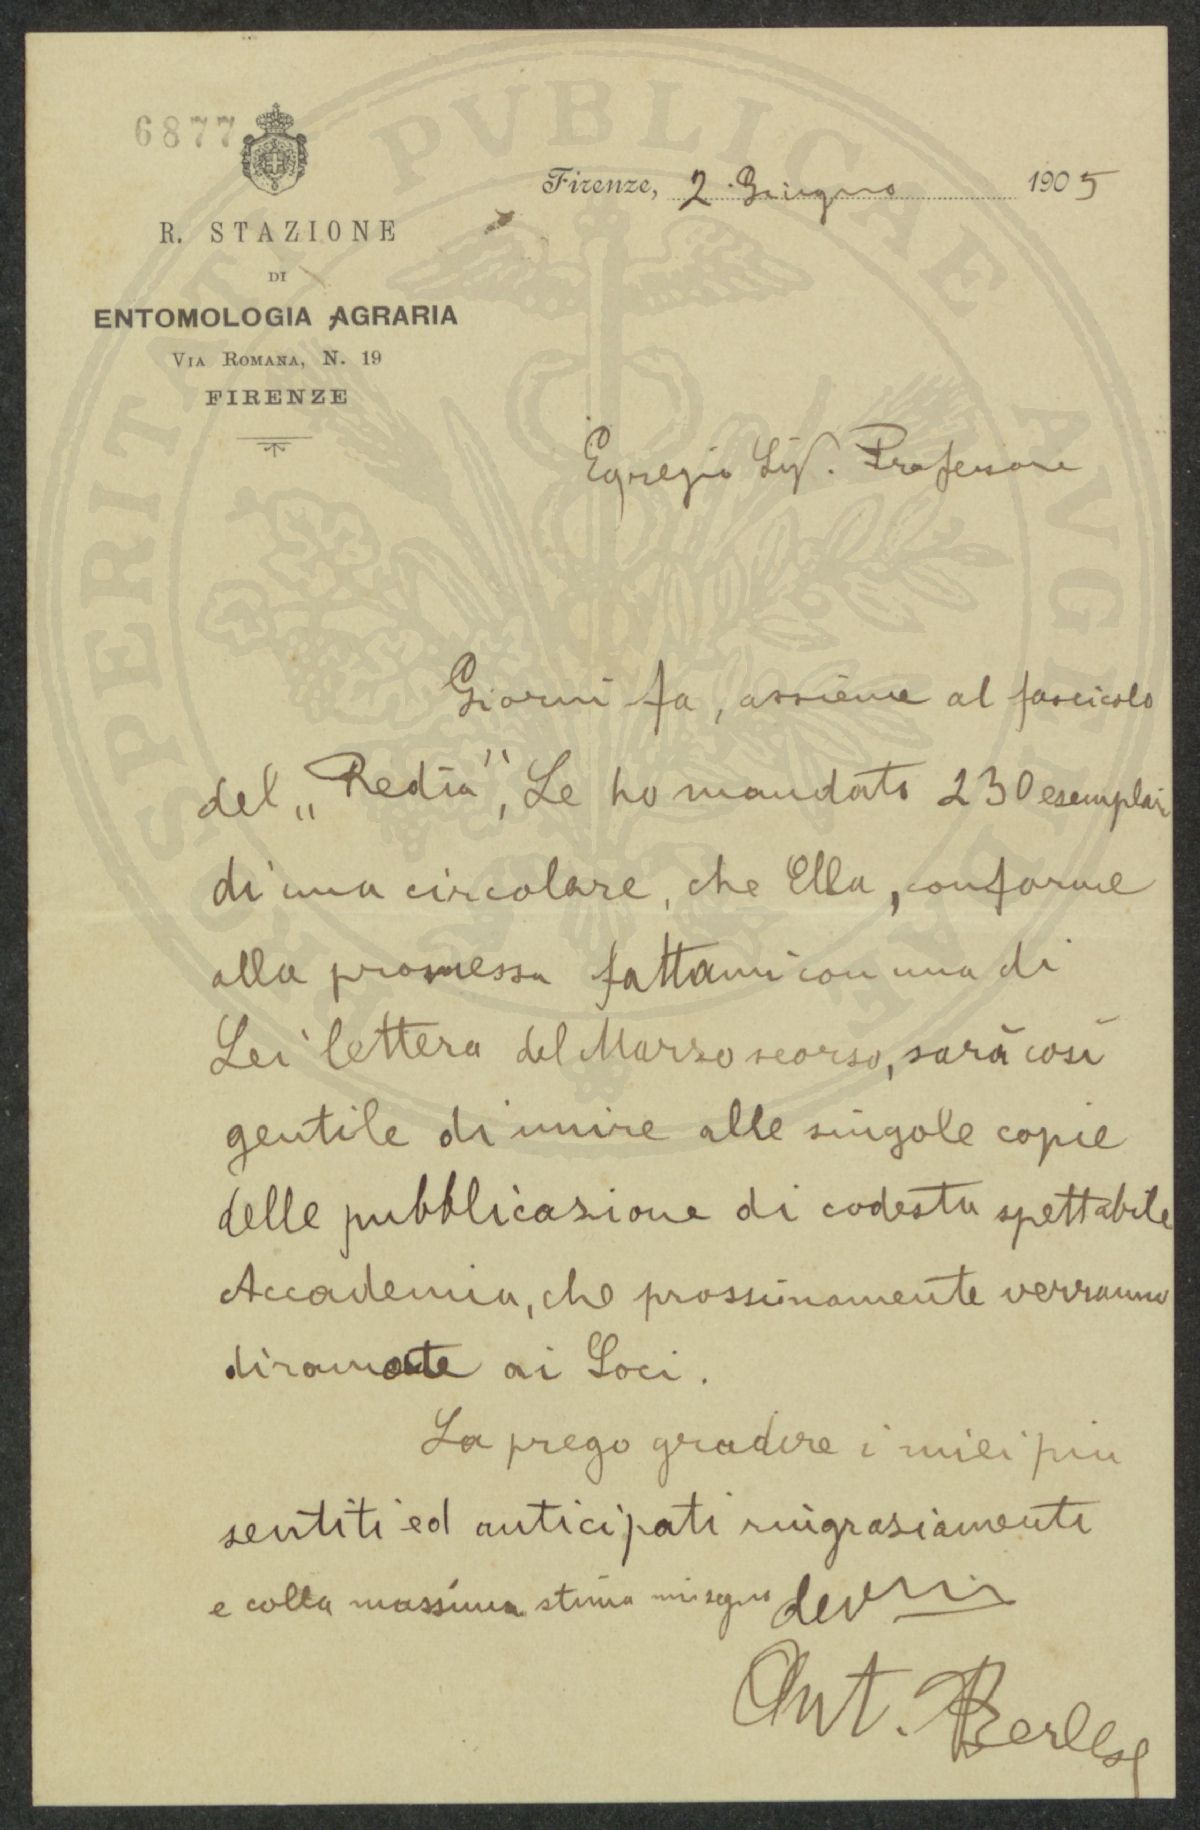 6877
R. STAZIONE
DI
ENTOMOLOGIA AGRARIA
VIA ROMANA, N. 19
FIRENZE
Firenze, 2 Giugno 1905
Egregio Sig. Professore
Giorni fa, assieme al fascicolo
del „Redia", Le ho mandato 230 esemplari
di una circolare, che Ella, conforme
alla promessa fattami con una di
Lei lettera del Marzo scorso, sarà così
gentile di unire alle singole copie
delle pubblicazione di codesta spettabile
Accademia, che prossimamente verranno
diramate ai Soci.
La prego gradire i miei più
sentiti ed anticipati ringraziamenti
e colla massima stima mi segno
Ant. Berlese